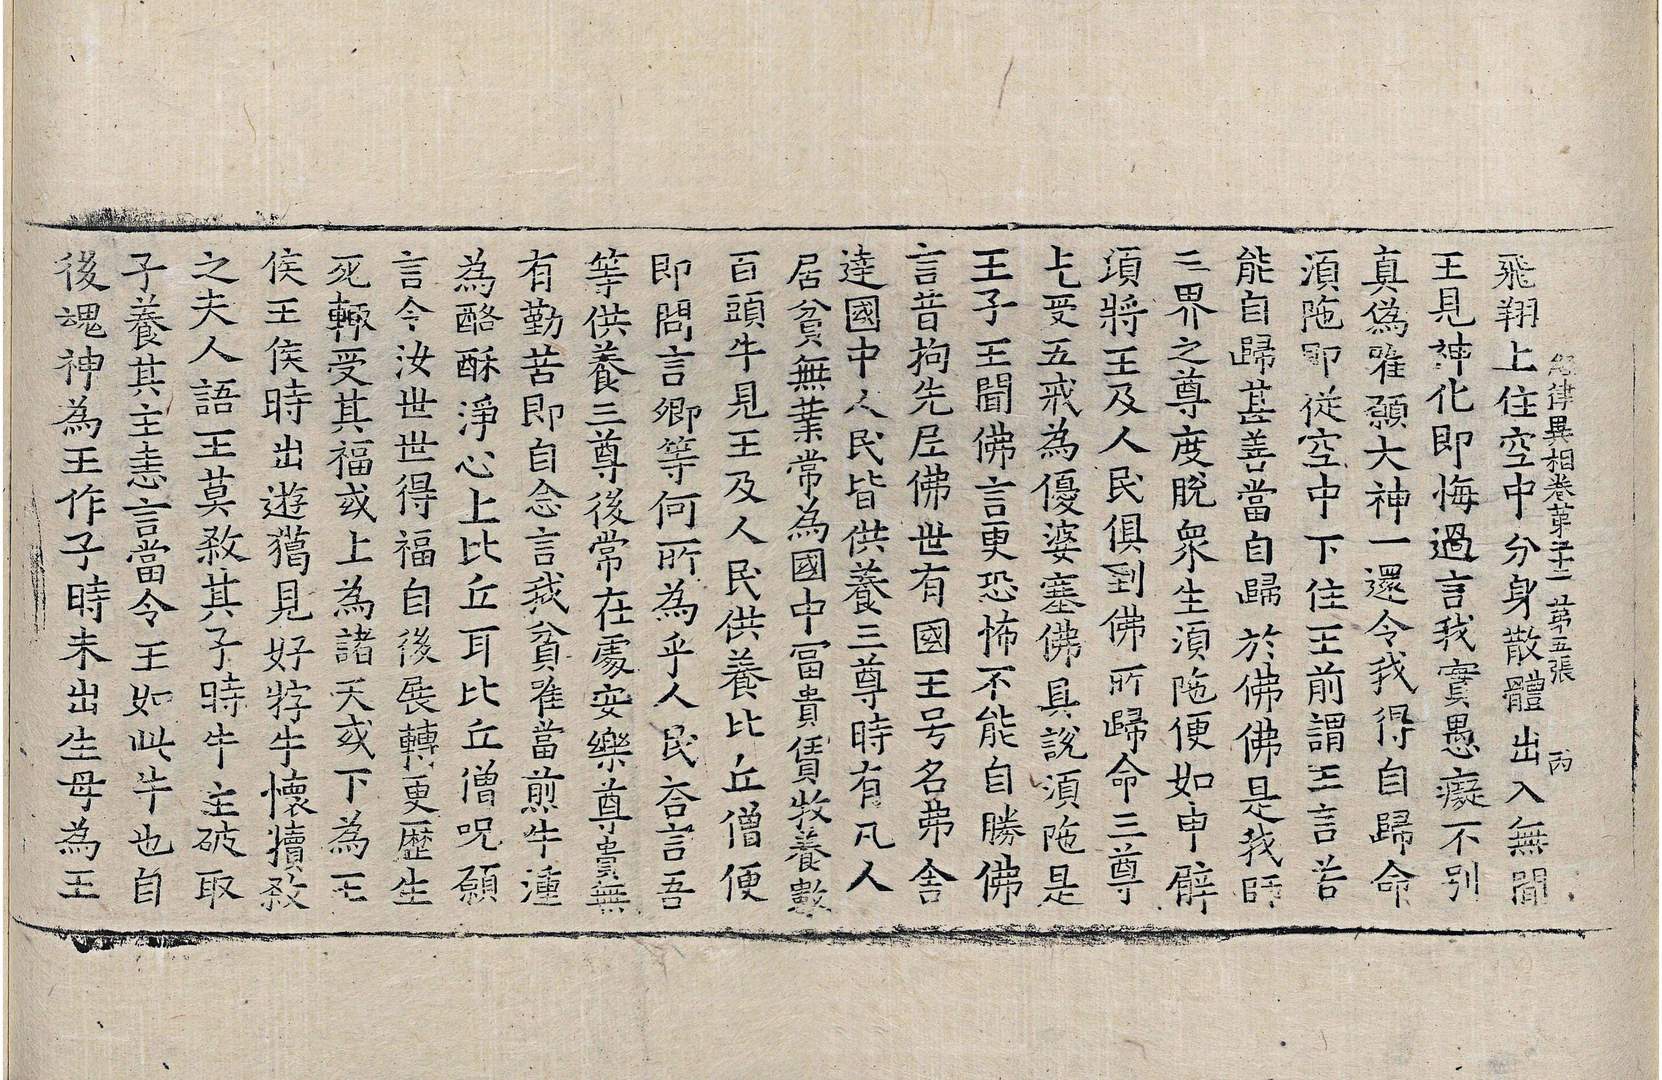 經律異相卷第三十一 第五張 丙
飛翔上住空中分身散體出入無閒
王見神化即悔過言我實愚癡不別
真偽唯願大神一還令我得自歸命
湏陁即從空中下住王前謂王言若
能自歸甚善當自歸於佛佛是我師
三界之尊度脫衆生湏陁便如申臂
項將王及人民俱到佛所歸命三尊
上受五戒為優婆塞佛具說湏陁是
王子王聞佛言更恐怖不能自勝佛
言昔拘先尼佛世有國王号名弗舍
達國中人民皆供養三尊時有凡人
居貧無業常為國中冨貴賃牧養數
百頭牛見王及人民供養比丘僧便
即問言卿等何所為乎人民荅言吾
等供養三尊後常在處安樂尊貴無
有勤苦即自念言我貧唯當煎牛湩
為酪酥淨心上比丘耳比丘僧呪願
言令汝世世得福自後展轉更歷生
死輙受其福或上為諸天或下為王
侯王侯時出遊獵見好牸牛懷犢敎
之夫人語王莫敎其子時牛主破取
子養其主恚言當令王如此牛也自
後魂神為王作子時未出生母為王